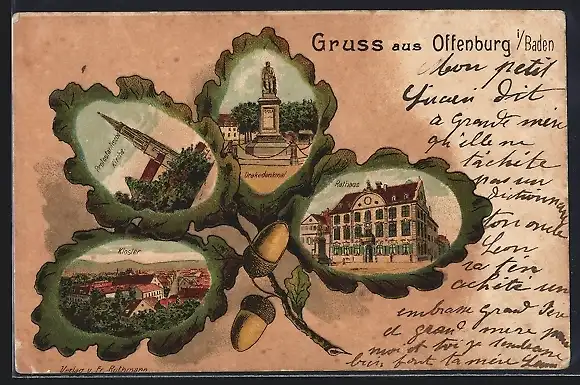 Gruss aus Offenburg i/Baden
Protestantische
Kirche
Drakedenkmal
Rathaus
Kloster
Verlag v. Fr. Rothmann
Mon petit
Lucien dit
a Grande mère
qu'elle ne
t'achète
pas un
dictionnaire
ton oncle
Léon
en achète un
embrasse Grand Père
et grand mère pour
moi et toi je t'embrasse
bien fort ta mère